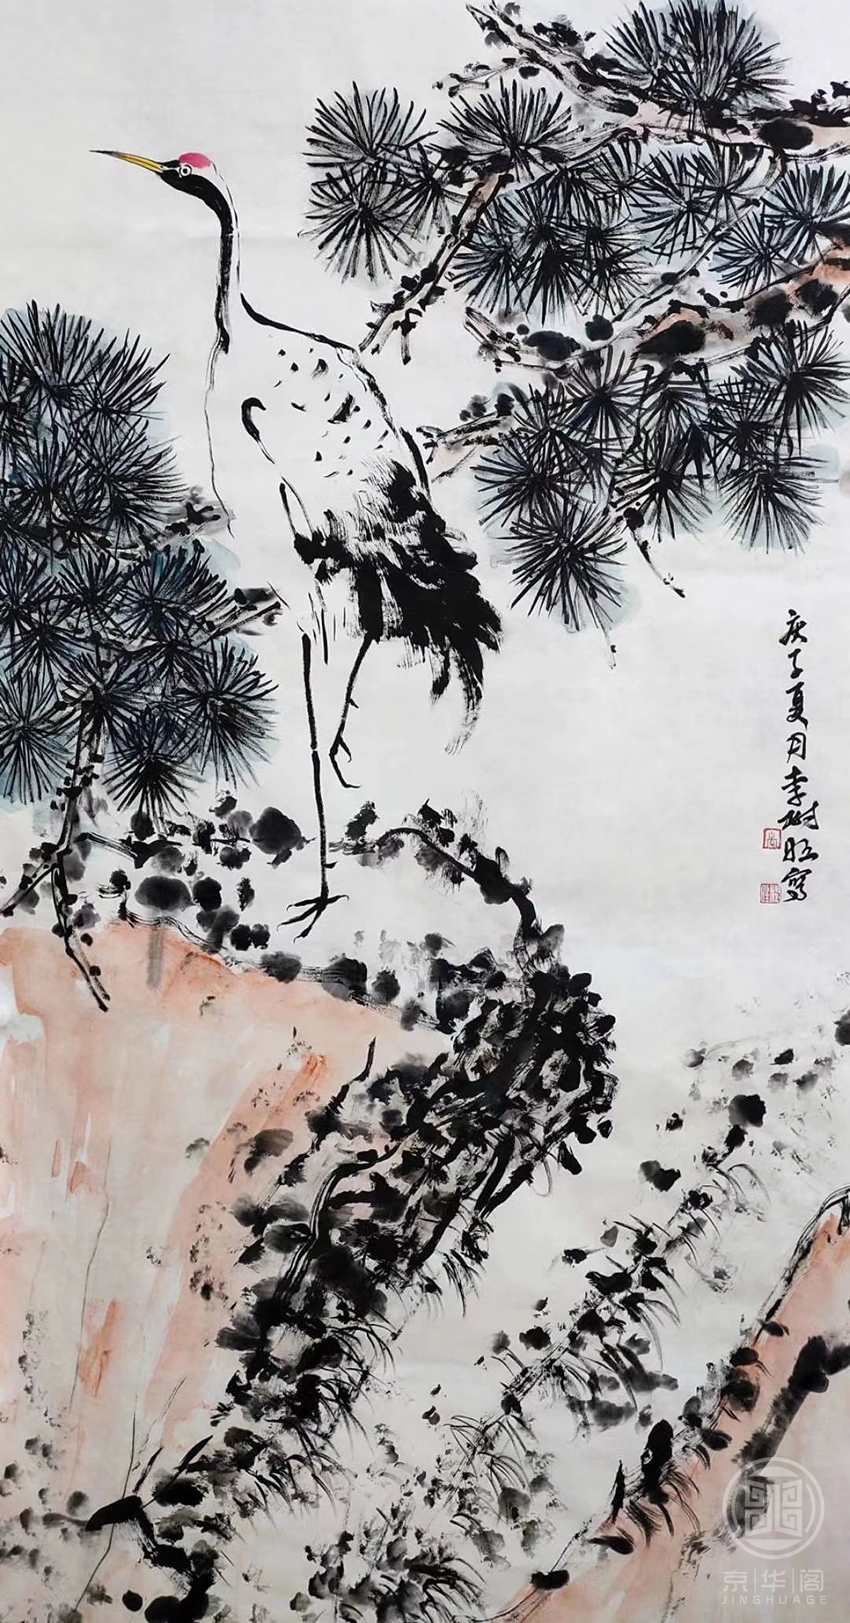 庚子夏月李树旺寫
京华阁
JINGHUAGE